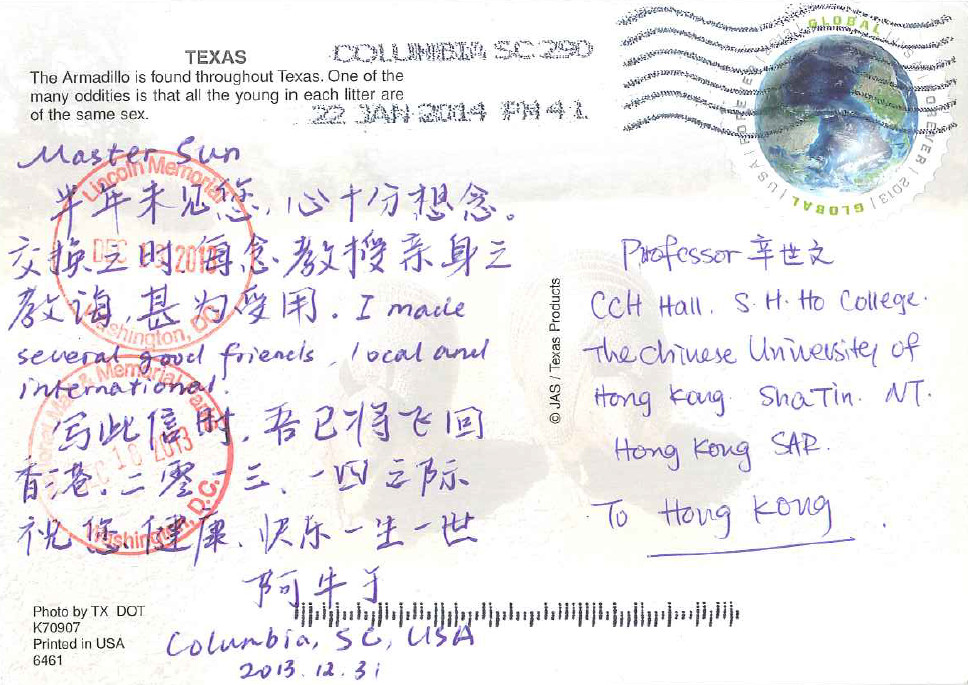 TEXAS
The Armadillo is found throughout Texas. One of the
many oddities is that all the young in each litter are
of the same sex.
COLUMBIA SC 290
22 JAN 2014 PM 4 L
GLOBAL
FOREVER
2013
GLOBAL
USA
Master Sun
半年未见您,心十分想念。
交换之时,每念教授亲身之
教诲,甚为受用. I made
several good friends, local and
international.
写此信时,吾已将飞回
香港.二零一三、一四之际
祝您健康、快乐一生一世
阿牛于
Columbia, SC, USA
2013.12.31
Lincoln Memorial
DEC 2013
Washington, D.C.
Mall & Memorial
DEC 16 2013
Washington, D.C.
© JAS / Texas Products
Professor 辛世文
CCH Hall. S.H. Ho College.
The Chinese University of
Hong Kong. ShaTin. NT.
Hong Kong SAR.
To Hong Kong
Photo by TX DOT
K70907
Printed in USA
6461